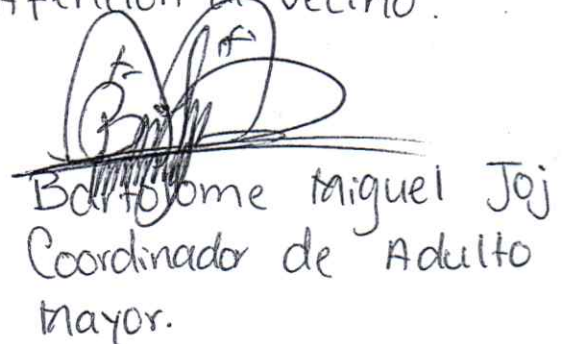 Atención al vecino.
Bartolome Miguel Joj
Coordinador de Adulto
Mayor.